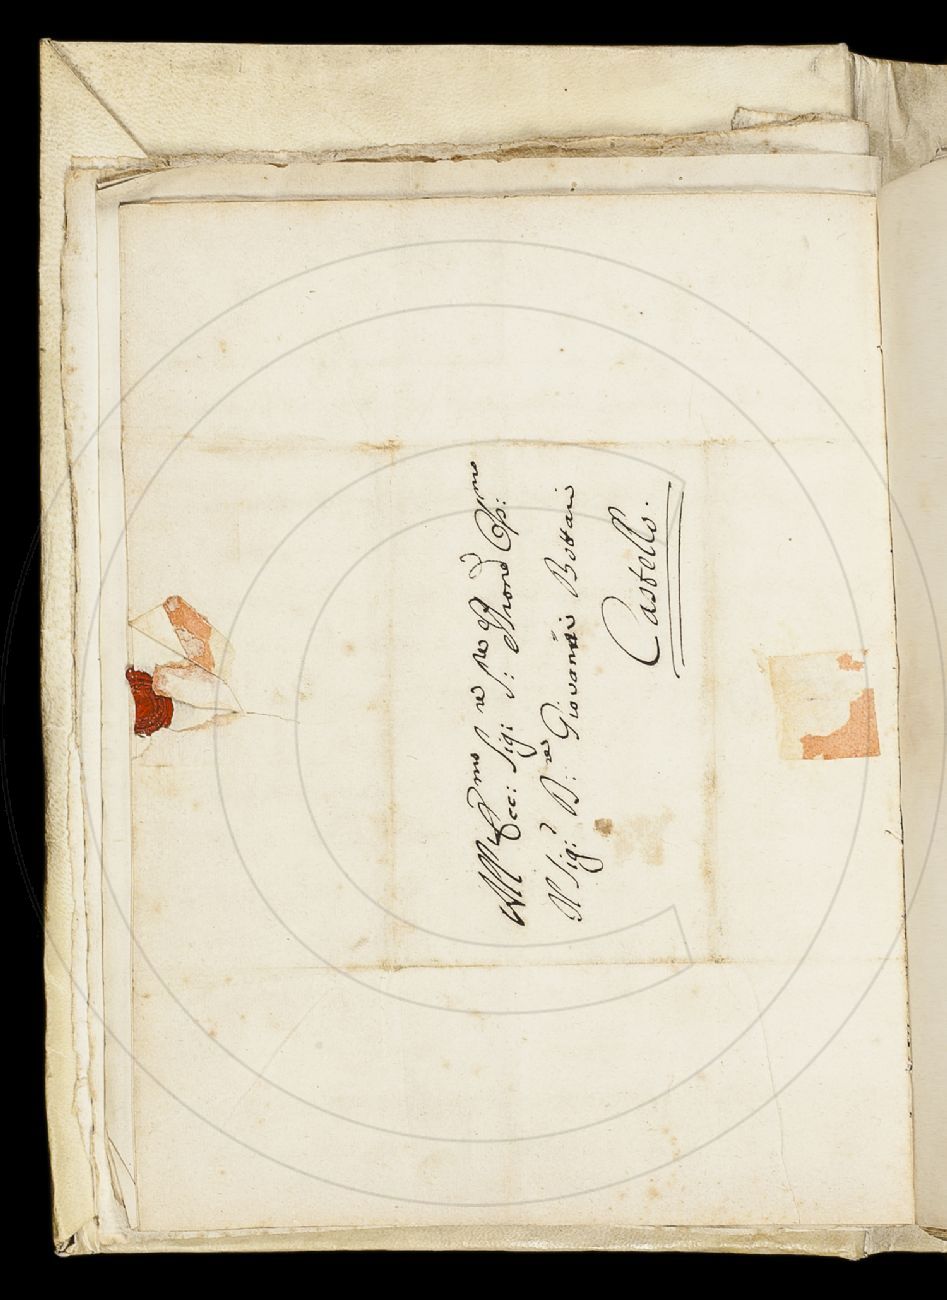 All Ecc:mo Sig:re S:re Pron Oss:mo
Il Sig:r D:r Giovanni Bottari
Castello.